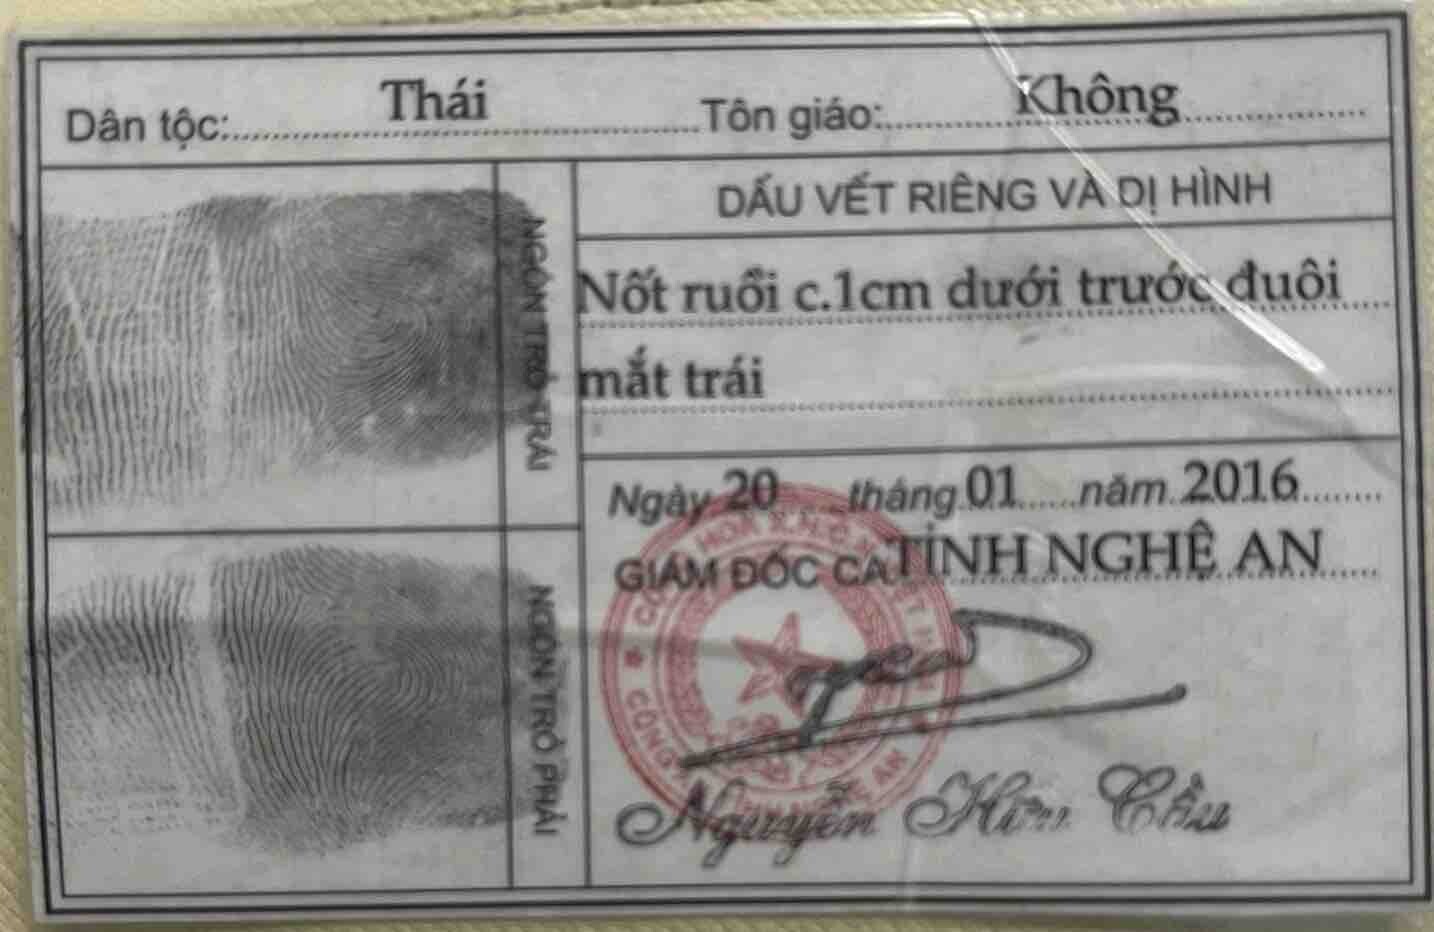 Dân tộc: Thái Tôn giáo: Không
DẤU VẾT RIÊNG VÀ DỊ HÌNH
Nốt ruồi c.1cm dưới trước đuôi
mắt trái
NGÓN TRỎ TRÁI
NGÓN TRỎ PHẢI
Ngày 20 tháng 01 năm 2016
GIÁM ĐỐC CA TỈNH NGHỆ AN
Nguyễn Hữu Cầu